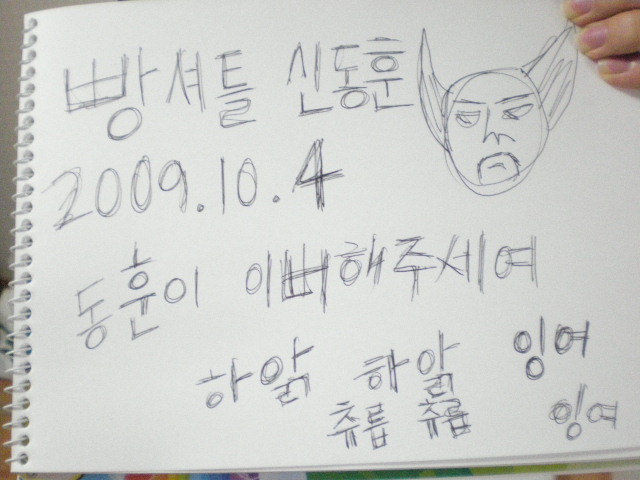 빵셔틀 신동훈
2009.10.4
동훈이 이뻐해주세여
하앍 해앍 잉여
츄릅 츄릅 잉여